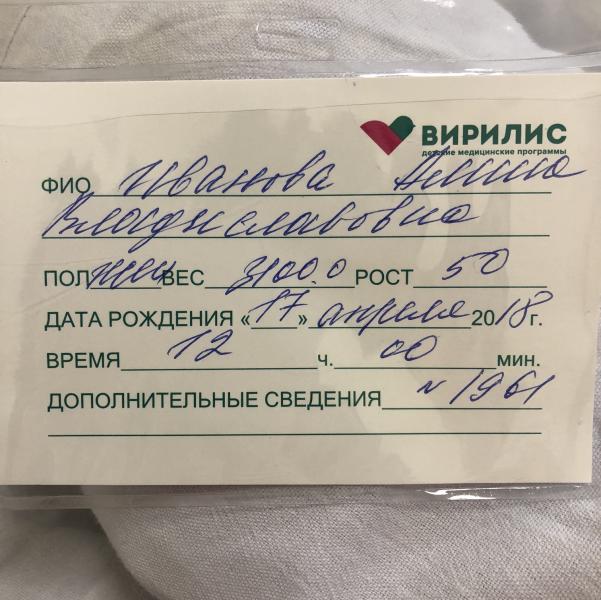 ВИРИЛИС
детские медицинские программы
ФИО Иванова Алина
Владиславовна
ПОЛ жен ВЕС 3100.0 РОСТ 50
ДАТА РОЖДЕНИЯ «17» апреля 2018 г.
ВРЕМЯ 12 ч. 00 мин.
ДОПОЛНИТЕЛЬНЫЕ СВЕДЕНИЯ N 1961